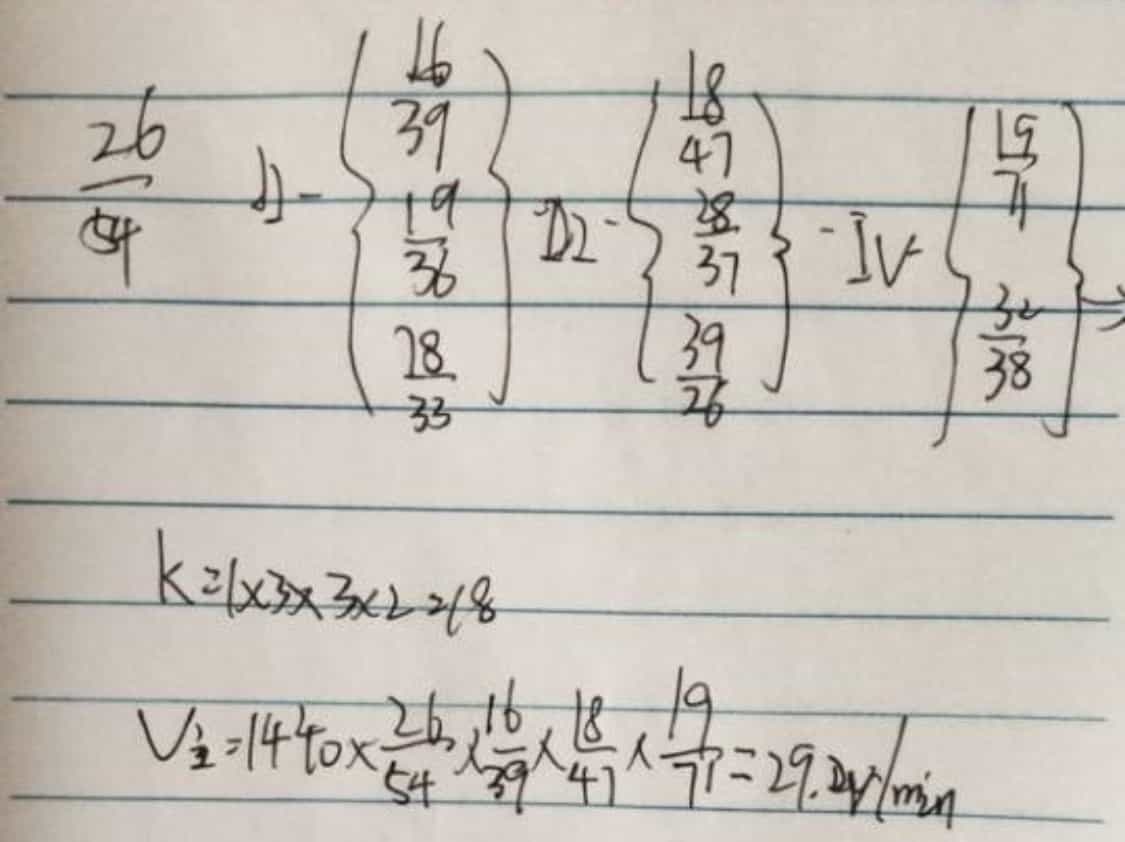 26/54 II - { 16/39 19/36 28/33 } III - { 18/47 28/37 39/26 } - IV - { 19/71 32/38 } →
K=1×3×3×2=18
V主=1440×26/54×16/39×18/47×19/71=29.2r/min